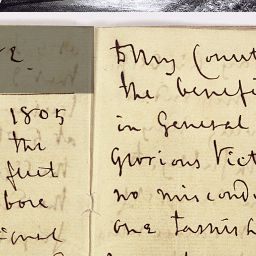 1805
the
fleet
bore
to my Count
the benefi
in General
Glorious Vict
no miscondu
one tarnish